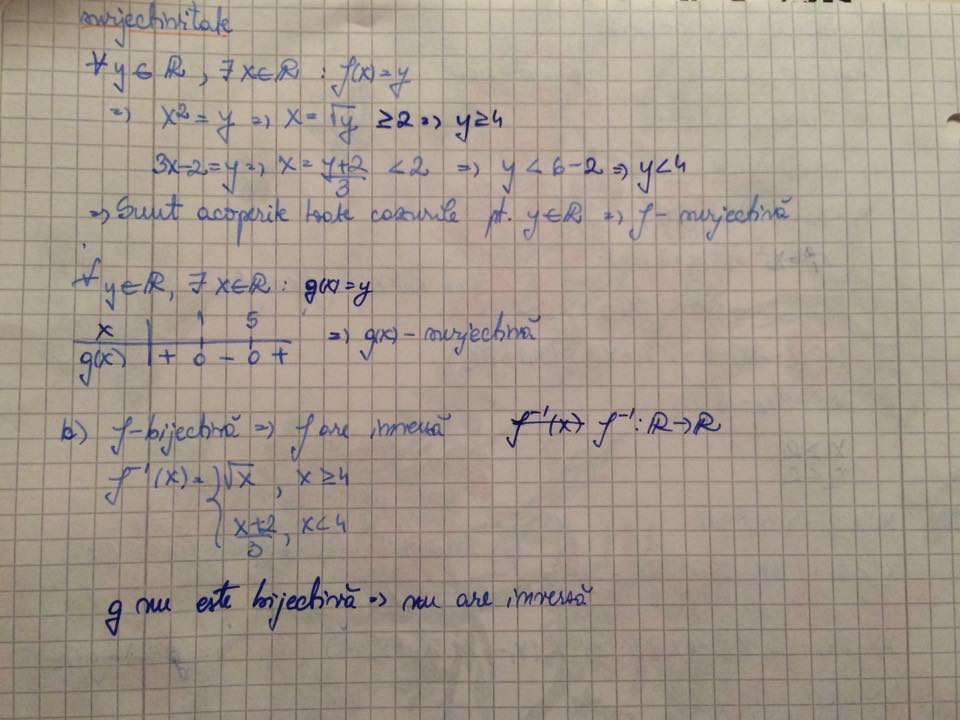 surjectivitate
∀ y ∈ ℝ, ∃ x ∈ ℝ : f(x) = y
⇒ x² = y ⇒ x = √y ≥ 2 ⇒ y ≥ 4
3x-2 = y ⇒ x = (y+2)/3 < 2 ⇒ y < 6-2 ⇒ y < 4
⇒ Sunt acoperite toate cazurile pt. y ∈ ℝ ⇒ f - surjectivă
∀ y ∈ ℝ, ∃ x ∈ ℝ : g(x) = y
x | 1 5 ⇒ g(x) - surjectivă
g(x) | + 0 - 0 +
b) f-bijectivă ⇒ f are inversă f⁻¹(x) f⁻¹ : ℝ → ℝ
f⁻¹(x) = { √x , x ≥ 4
(x+2)/3 , x < 4
g nu este bijectivă ⇒ nu are inversă